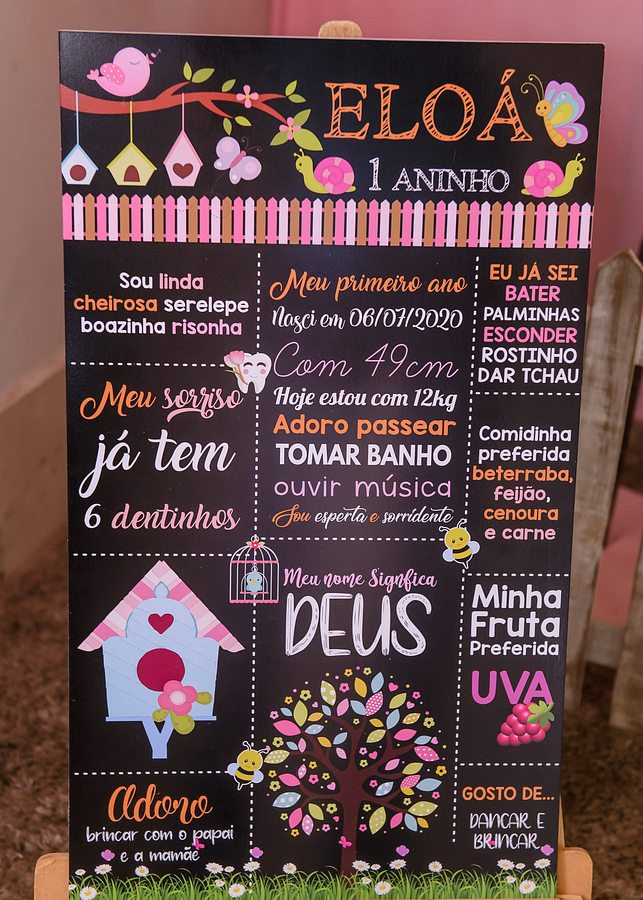 ELOÁ
1 ANINHO
Sou linda
cheirosa serelepe
boazinha risonha
Meu sorriso
já tem
6 dentinhos
Adoro
brincar com o papai
e a mamãe
Meu primeiro ano
Nasci em 06/07/2020
Com 49cm
Hoje estou com 12kg
Adoro passear
TOMAR BANHO
ouvir música
Sou esperta e sorridente
Meu nome Signfica
DEUS
EU JÁ SEI
BATER
PALMINHAS
ESCONDER
ROSTINHO
DAR TCHAU
Comidinha
preferida
beterraba,
feijão,
cenoura
e carne
Minha
Fruta
Preferida
UVA
GOSTO DE...
DANÇAR E
BRINCAR